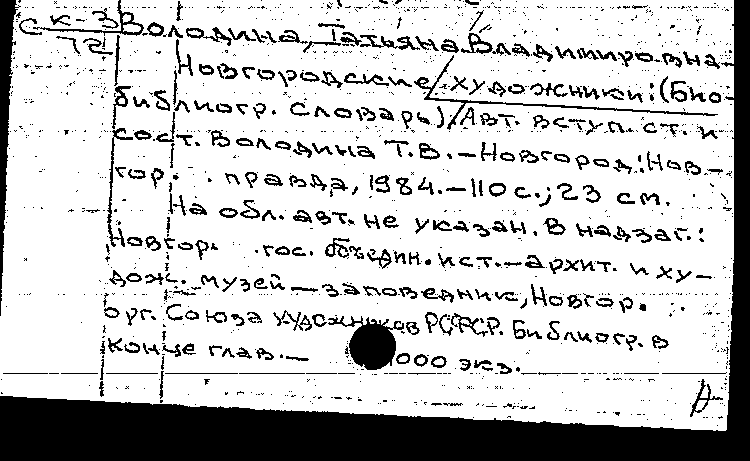 С к-3 Володина, Татьяна Владимировна.
72 Новгородские художники: (Био-
библиогр. словарь)/Авт. вступ. ст. и
сост. Володина Т.В. - Новгород: Нов-
гор. правда, 1984. - 110 с.; 23 см.
На обл. авт. не указан. В надзаг.:
Новгор. гос. объедин. ист. - архит. и ху-
дож. музей - заповедник, Новгор.
орг. Союза художников РСФСР. Библиогр. в
конце глав. - 000 экз.